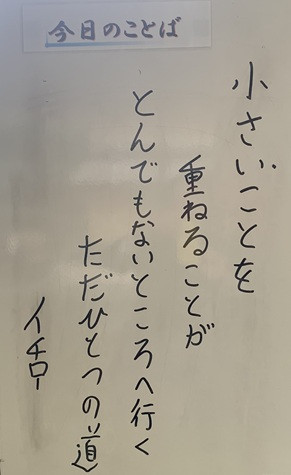 今日のことば
小さいことを
重ねることが
とんでもないところへ行く
ただひとつの道
イチロー